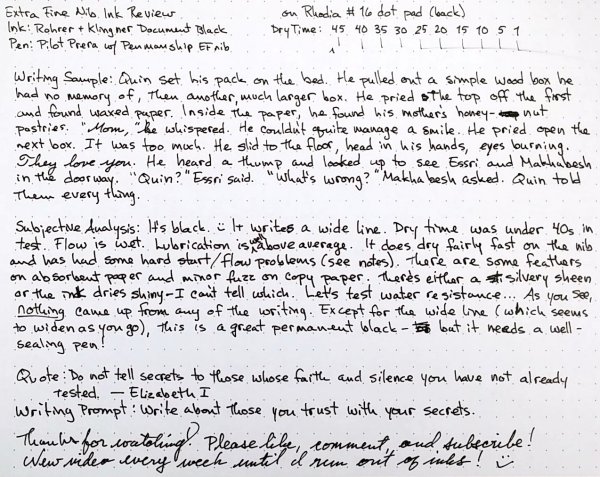 Extra Fine Nib Ink Review on Rhodia #16 dot pad (back)
Ink: Rohrer + Klingner Document Black Dry Time: 45 40 35 30 25 20 15 10 5 1
Pen: Pilot Prera w/ Penmanship EF nib
Writing Sample: Quin set his pack on the bed. He pulled out a simple wood box he
had no memory of, Then another, much larger box. He pried the top off the first
and found waxed paper. Inside the paper, he found his mother's honey-nut
pastries. "Mom," he whispered. He couldn't quite manage a smile. He pried open the
next box. It was too much. He slid to the floor, head in his hands, eyes burning.
They love you. He heard a thump and looked up to see Essri and Makhabesh
in the doorway. "Quin?" Essri said. "What's wrong?" Makhabesh asked. Quin told
Them everything.
Subjective Analysis: It's black. :) It writes a wide line. Dry time was under 40s in
test. Flow is wet. Lubrication is well above average. It does dry fairly fast on the nib
and has had some hard start/flow problems (see notes). There are some feathers
on absorbent paper and minor fuzz on copy paper. There's either a silvery sheen
or the ink dries shiny - I can't tell which. Let's test water resistance... As you see,
nothing came up from any of the writing. Except for the wide line (which seems
to widen as you go), this is a great permanent black - but it needs a well-
sealing pen!
Quote: Do not tell secrets to those whose faith and silence you have not already
tested. — Elizabeth I
Writing Prompt: Write about those you trust with your secrets.
Thanks for watching! Please like, comment, and subscribe!
New video every week until I run out of inks! :)